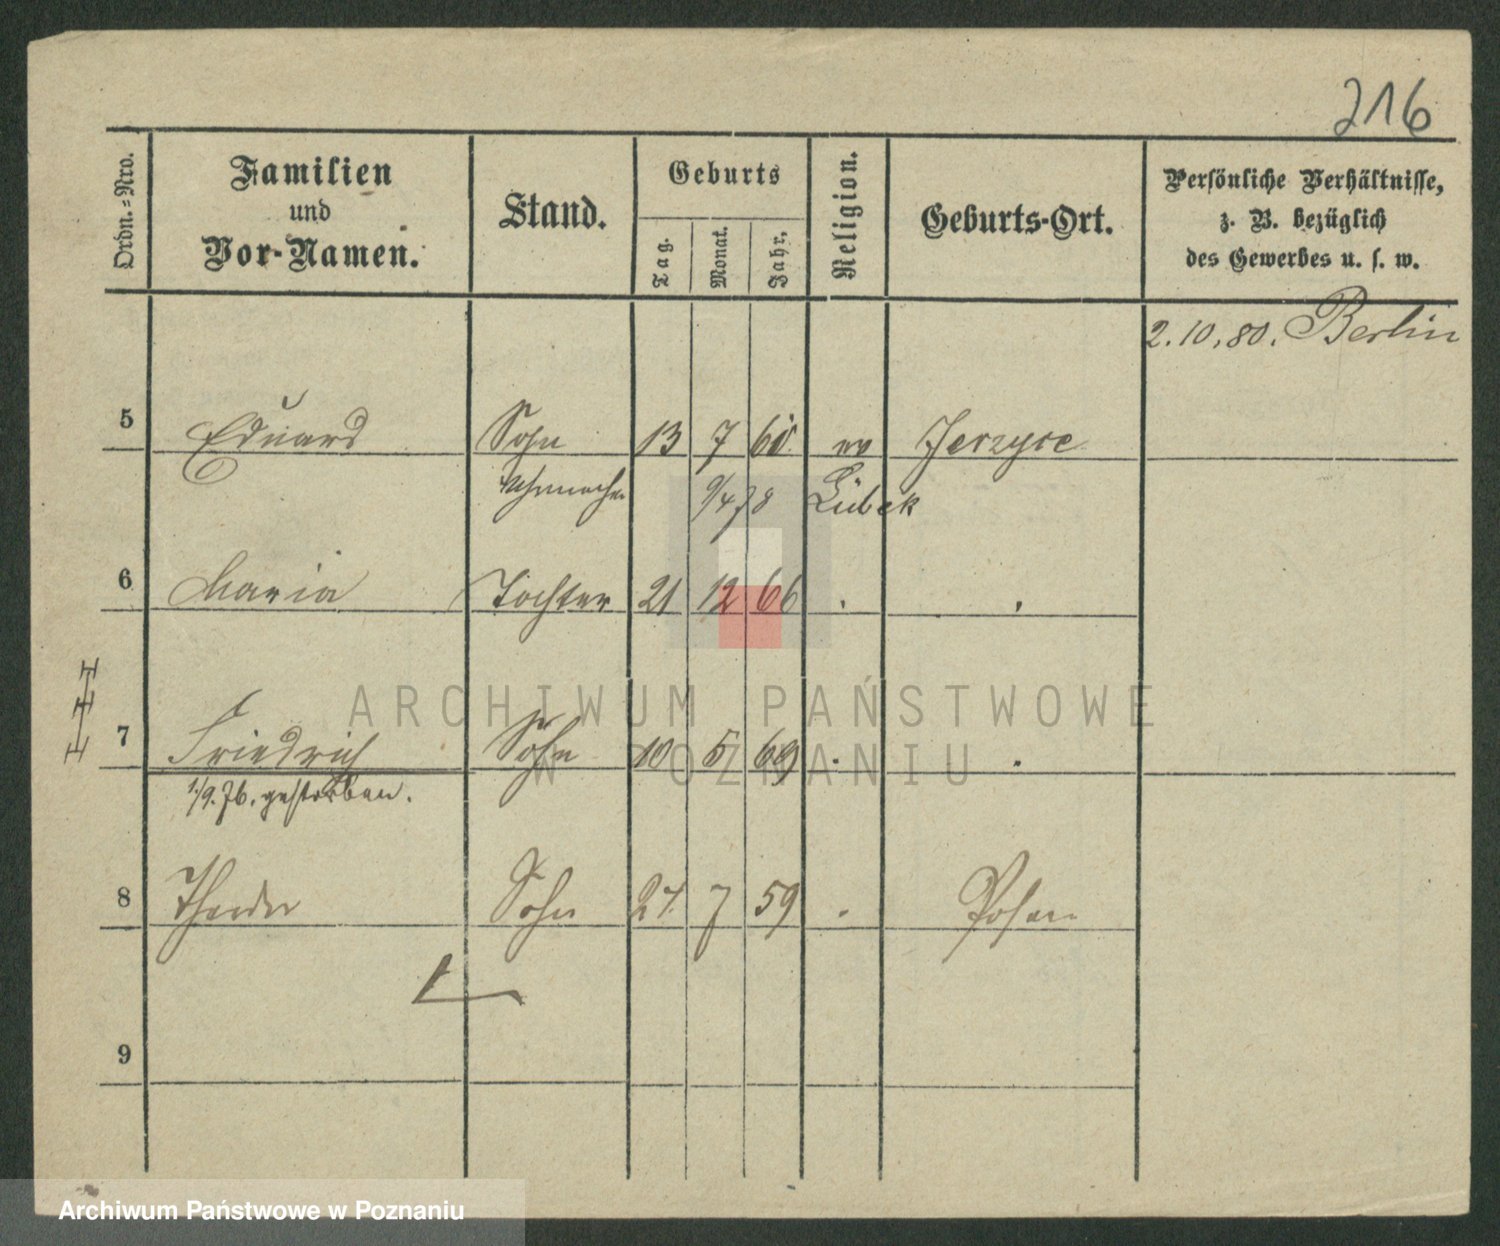 216
Ordn.=Nro.
Familien
und
Vor-Namen.
Stand.
Geburts
Tag.
Monat.
Jahr.
Religion.
Geburts-Ort.
Persönliche Verhältnisse,
z. B. bezüglich
des Gewerbes u. s. w.
2.10.80. Berlin
5 Eduard Sohn 13 7 ev Jerzyce
Uhrmacher 9/4 78 Lübek
6 Maria Tochter 21 12 66
7 Friedrich Sohn 10 5 69
1/9.76. gestorben.
8 Theodor Sohn 27. 7 59 Posen
9
ARCHIWUM PAŃSTWOWE
W POZNANIU
Archiwum Państwowe w Poznaniu